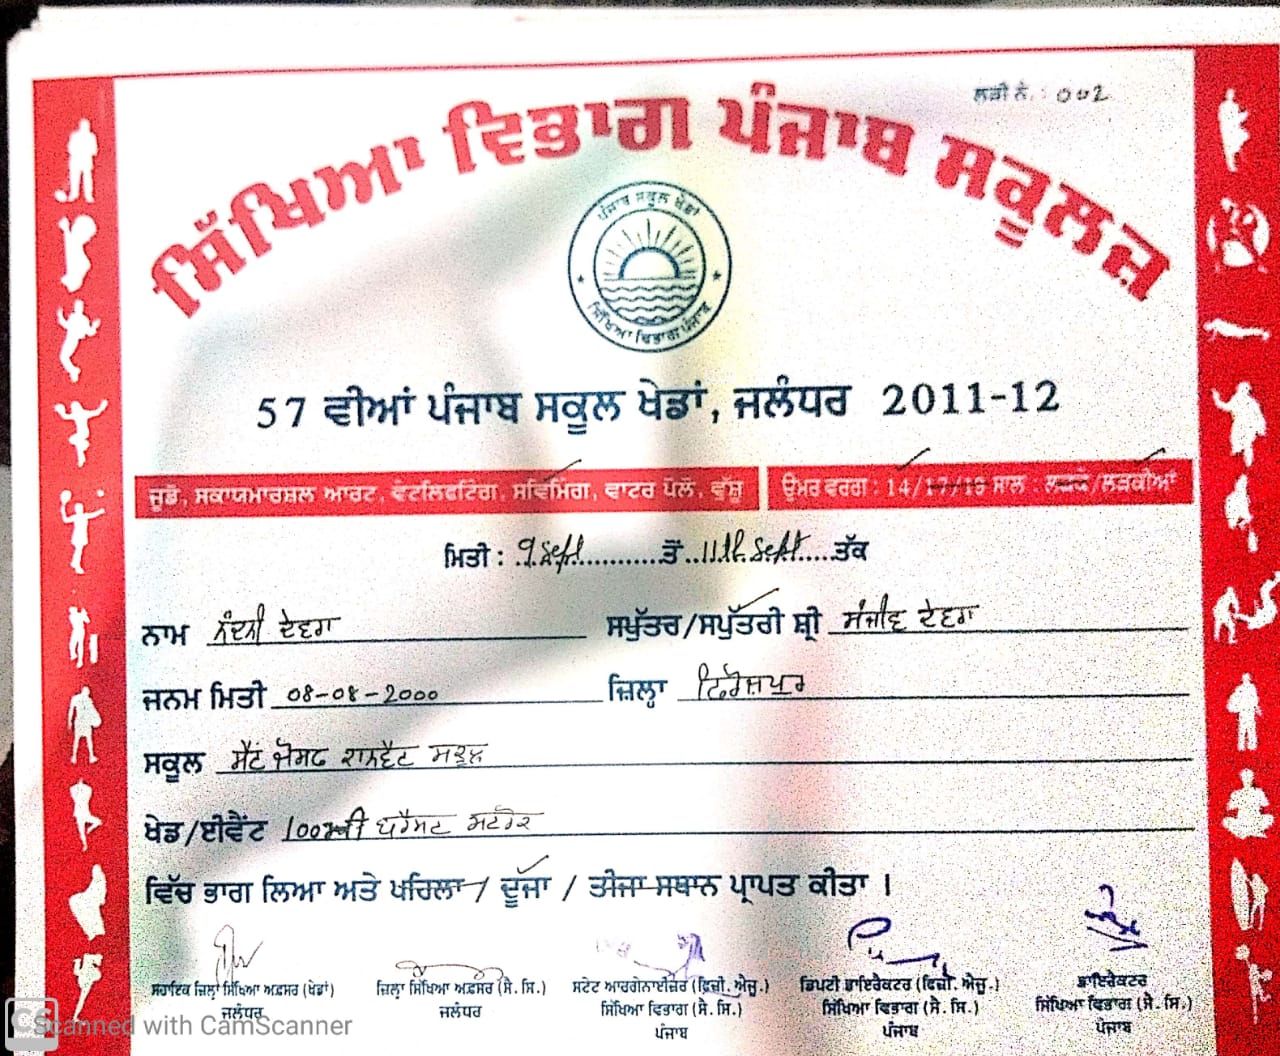 ਲੜੀ ਨੰ. : 002
ਸਿੱਖਿਆ ਵਿਭਾਗ ਪੰਜਾਬ ਸਕੂਲਜ਼
ਪੰਜਾਬ ਸਕੂਲ ਖੇਡਾਂ
ਸਿੱਖਿਆ ਵਿਭਾਗ ਪੰਜਾਬ
57 ਵੀਆਂ ਪੰਜਾਬ ਸਕੂਲ ਖੇਡਾਂ, ਜਲੰਧਰ 2011-12
ਜੂਡੋ, ਸਕਾਯਮਾਰਸ਼ਲ ਆਰਟ, ਵੇਟਲਿਫਟਿੰਗ, ਸਵਿਮਿੰਗ, ਵਾਟਰ ਪੋਲੋ, ਵੁੱਸ਼ੂ
ਉਮਰ ਵਰਗ : 14/17/19 ਸਾਲ : ਲੜਕੇ/ਲੜਕੀਆਂ
ਮਿਤੀ : 9 Sept ਤੋਂ 11th Sept ਤੱਕ
ਨਾਮ ਨੰਦਨੀ ਦੇਵਗਾ ਸਪੁੱਤਰ/ਸਪੁੱਤਰੀ ਸ਼੍ਰੀ ਸੰਜੀਵ ਦੇਵਗਾ
ਜਨਮ ਮਿਤੀ 08-08-2000 ਜ਼ਿਲ੍ਹਾ ਫਿਰੋਜ਼ਪੁਰ
ਸਕੂਲ ਸੈਂਟ ਜੋਸਫ ਕਾਨਵੈਂਟ ਸਕੂਲ
ਖੇਡ/ਈਵੈਂਟ 100ਮੀ ਬਰੈਸਟ ਸਟਰੋਕ
ਵਿੱਚ ਭਾਗ ਲਿਆ ਅਤੇ ਪਹਿਲਾ / ਦੂੱਜਾ / ਤੀਜਾ ਸਥਾਨ ਪ੍ਰਾਪਤ ਕੀਤਾ ।
ਸਹਾਇਕ ਜ਼ਿਲ੍ਹਾ ਸਿੱਖਿਆ ਅਫ਼ਸਰ (ਖੇਡਾਂ)
ਜਲੰਧਰ
ਜ਼ਿਲ੍ਹਾ ਸਿੱਖਿਆ ਅਫ਼ਸਰ (ਸੈ. ਸਿ.)
ਜਲੰਧਰ
ਸਟੇਟ ਆਰਗੇਨਾਈਜ਼ਰ (ਫ਼ਿਜ਼ੀ. ਐਜੂ.)
ਸਿੱਖਿਆ ਵਿਭਾਗ (ਸੈ. ਸਿ.)
ਪੰਜਾਬ
ਡਿਪਟੀ ਡਾਇਰੈਕਟਰ (ਫ਼ਿਜ਼ੀ. ਐਜੂ.)
ਸਿੱਖਿਆ ਵਿਭਾਗ (ਸੈ. ਸਿ.)
ਪੰਜਾਬ
ਡਾਇਰੈਕਟਰ
ਸਿੱਖਿਆ ਵਿਭਾਗ (ਸੈ. ਸਿ.)
ਪੰਜਾਬ
CS
Scanned with CamScanner